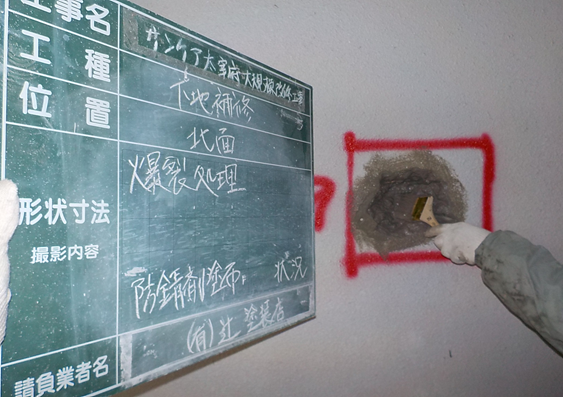 工事名 サンケア太宰府大規模改修工事
工種 下地補修
位置 北面
爆裂処理
形状寸法
撮影内容
防錆剤塗布 状況
請負業者名 (有)辻塗装店